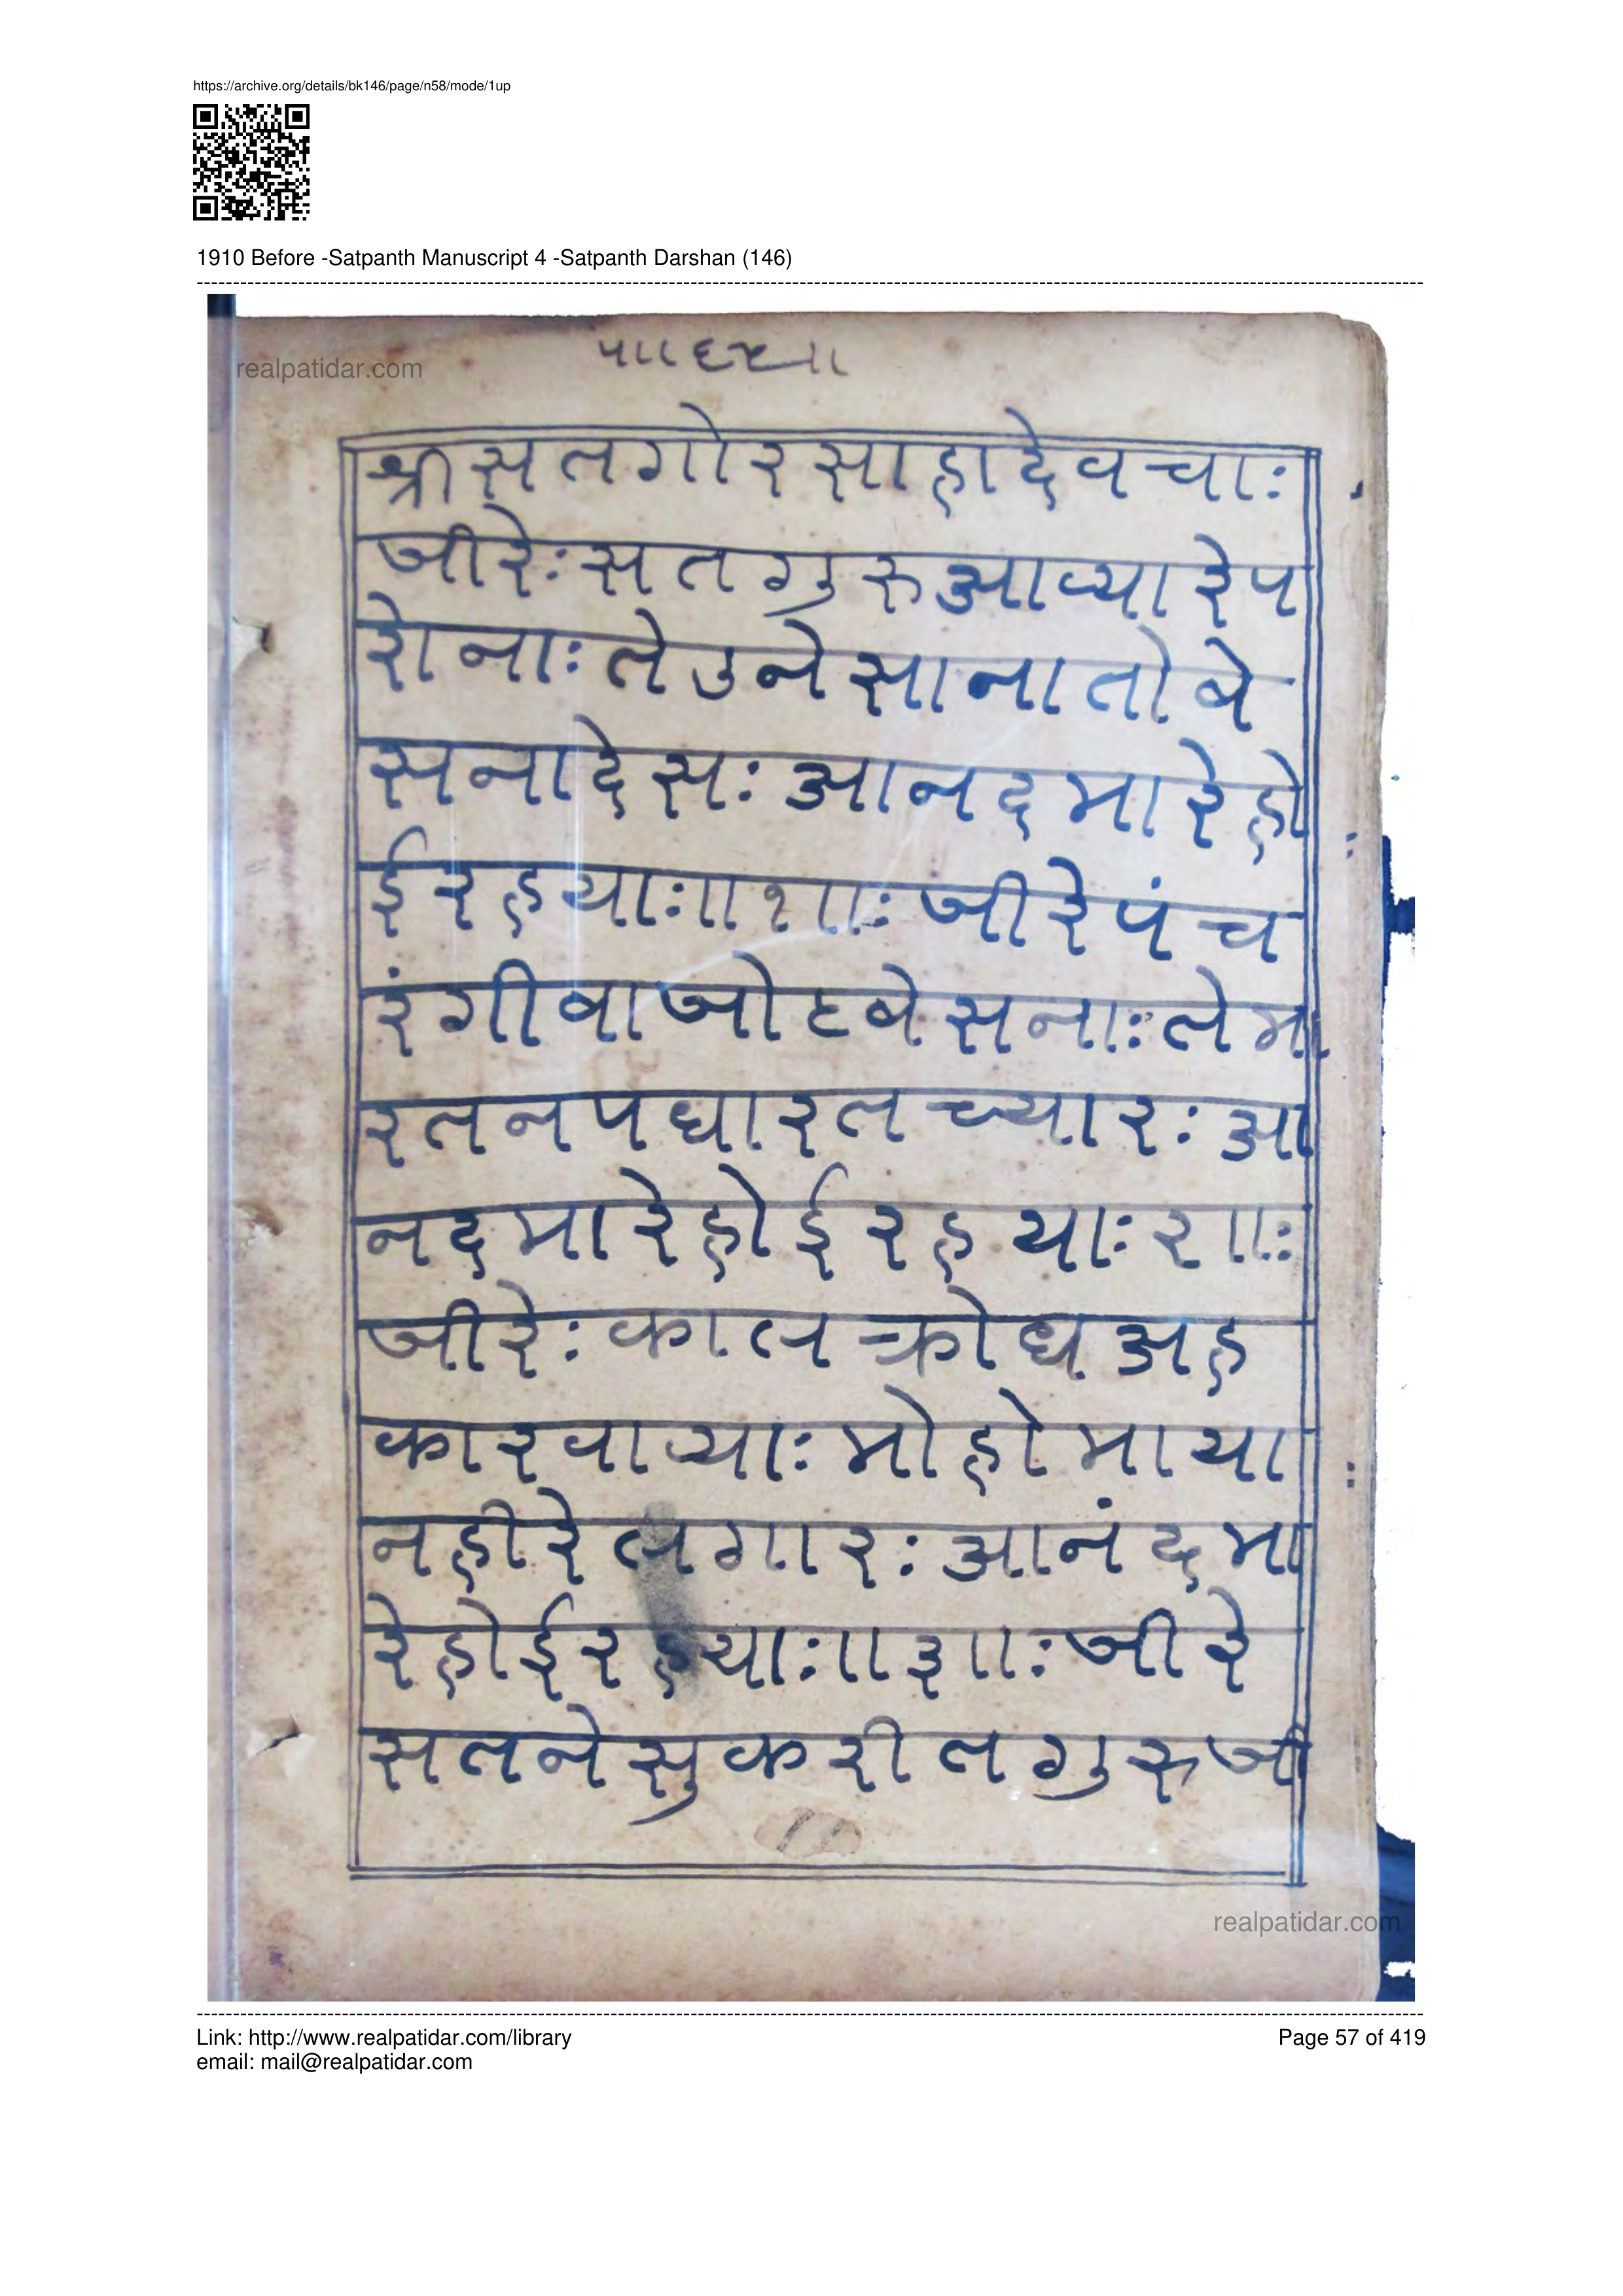 https://archive.org/details/bk146/page/n58/mode/1up
1910 Before -Satpanth Manuscript 4 -Satpanth Darshan (146)
realpatidar.com
श्री सतगोरसाहादेवचाः
जीरेः सतगुरुआव्यारेप
रोनाः तेउनेसानातोबे
सनादेसः आनदमारेहो
ईरहयाः॥१॥ः जीरेपंच
रंगीबाजोटबेसनाः तेमा
रतनपधारतच्यारः आ
नदमारेहोईरहयाः२॥ः
जीरेः कालक्रोधअह
कारवाव्याः मोहोमाया
नहीरेलगारः आनंदमा
रेहोईरहयाः॥३॥ः जीरे
सतनेसुकरीतगुरुजी
realpatidar.com
Link: http://www.realpatidar.com/library
Page 57 of 419
email: mail@realpatidar.com